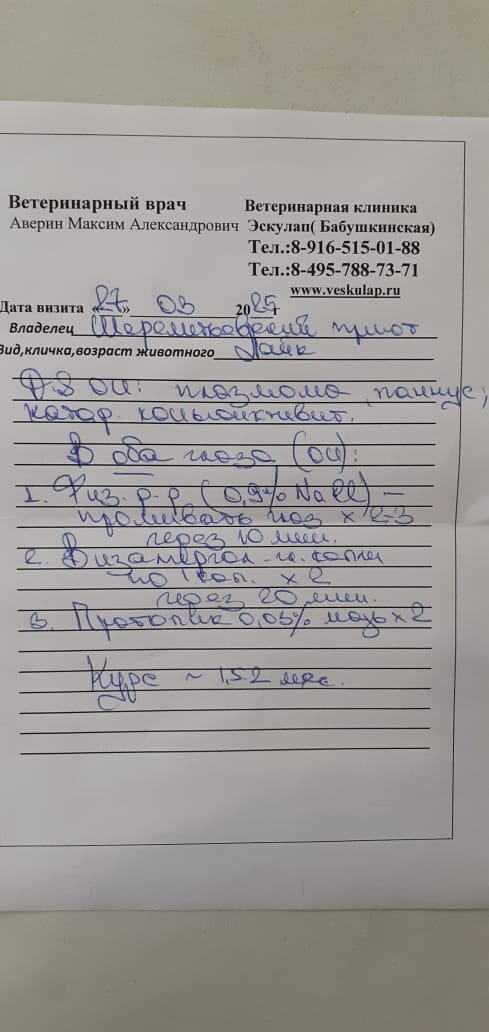 Ветеринарный врач
Аверин Максим Александрович
Ветеринарная клиника
Эскулап( Бабушкинская)
Тел.:8-916-515-01-88
Тел.:8-495-788-73-71
www.veskulap.ru
Дата визита «27» 03 2025г
Владелец Шереметьевский приют
Вид,кличка,возраст животного Лайк
D.S OU: плазмома, паннус,
катар. конъюнктивит.
В оба глаза (OU):
1. Физ. р-р (0,9% NaCl) –
промывать глаз x 2-3
через 10 мин.
2. Визамергол - гл. капли
по 1 кап. x 2
через 20 мин.
3. Протопик 0,03% мазь x 2
Курс ~ 1,5-2 мес.